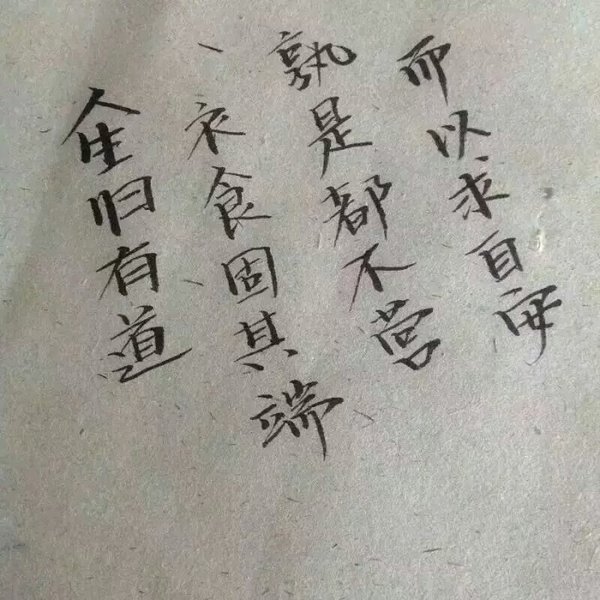 人生归有道
衣食固其端
孰是都不营
而以求自安